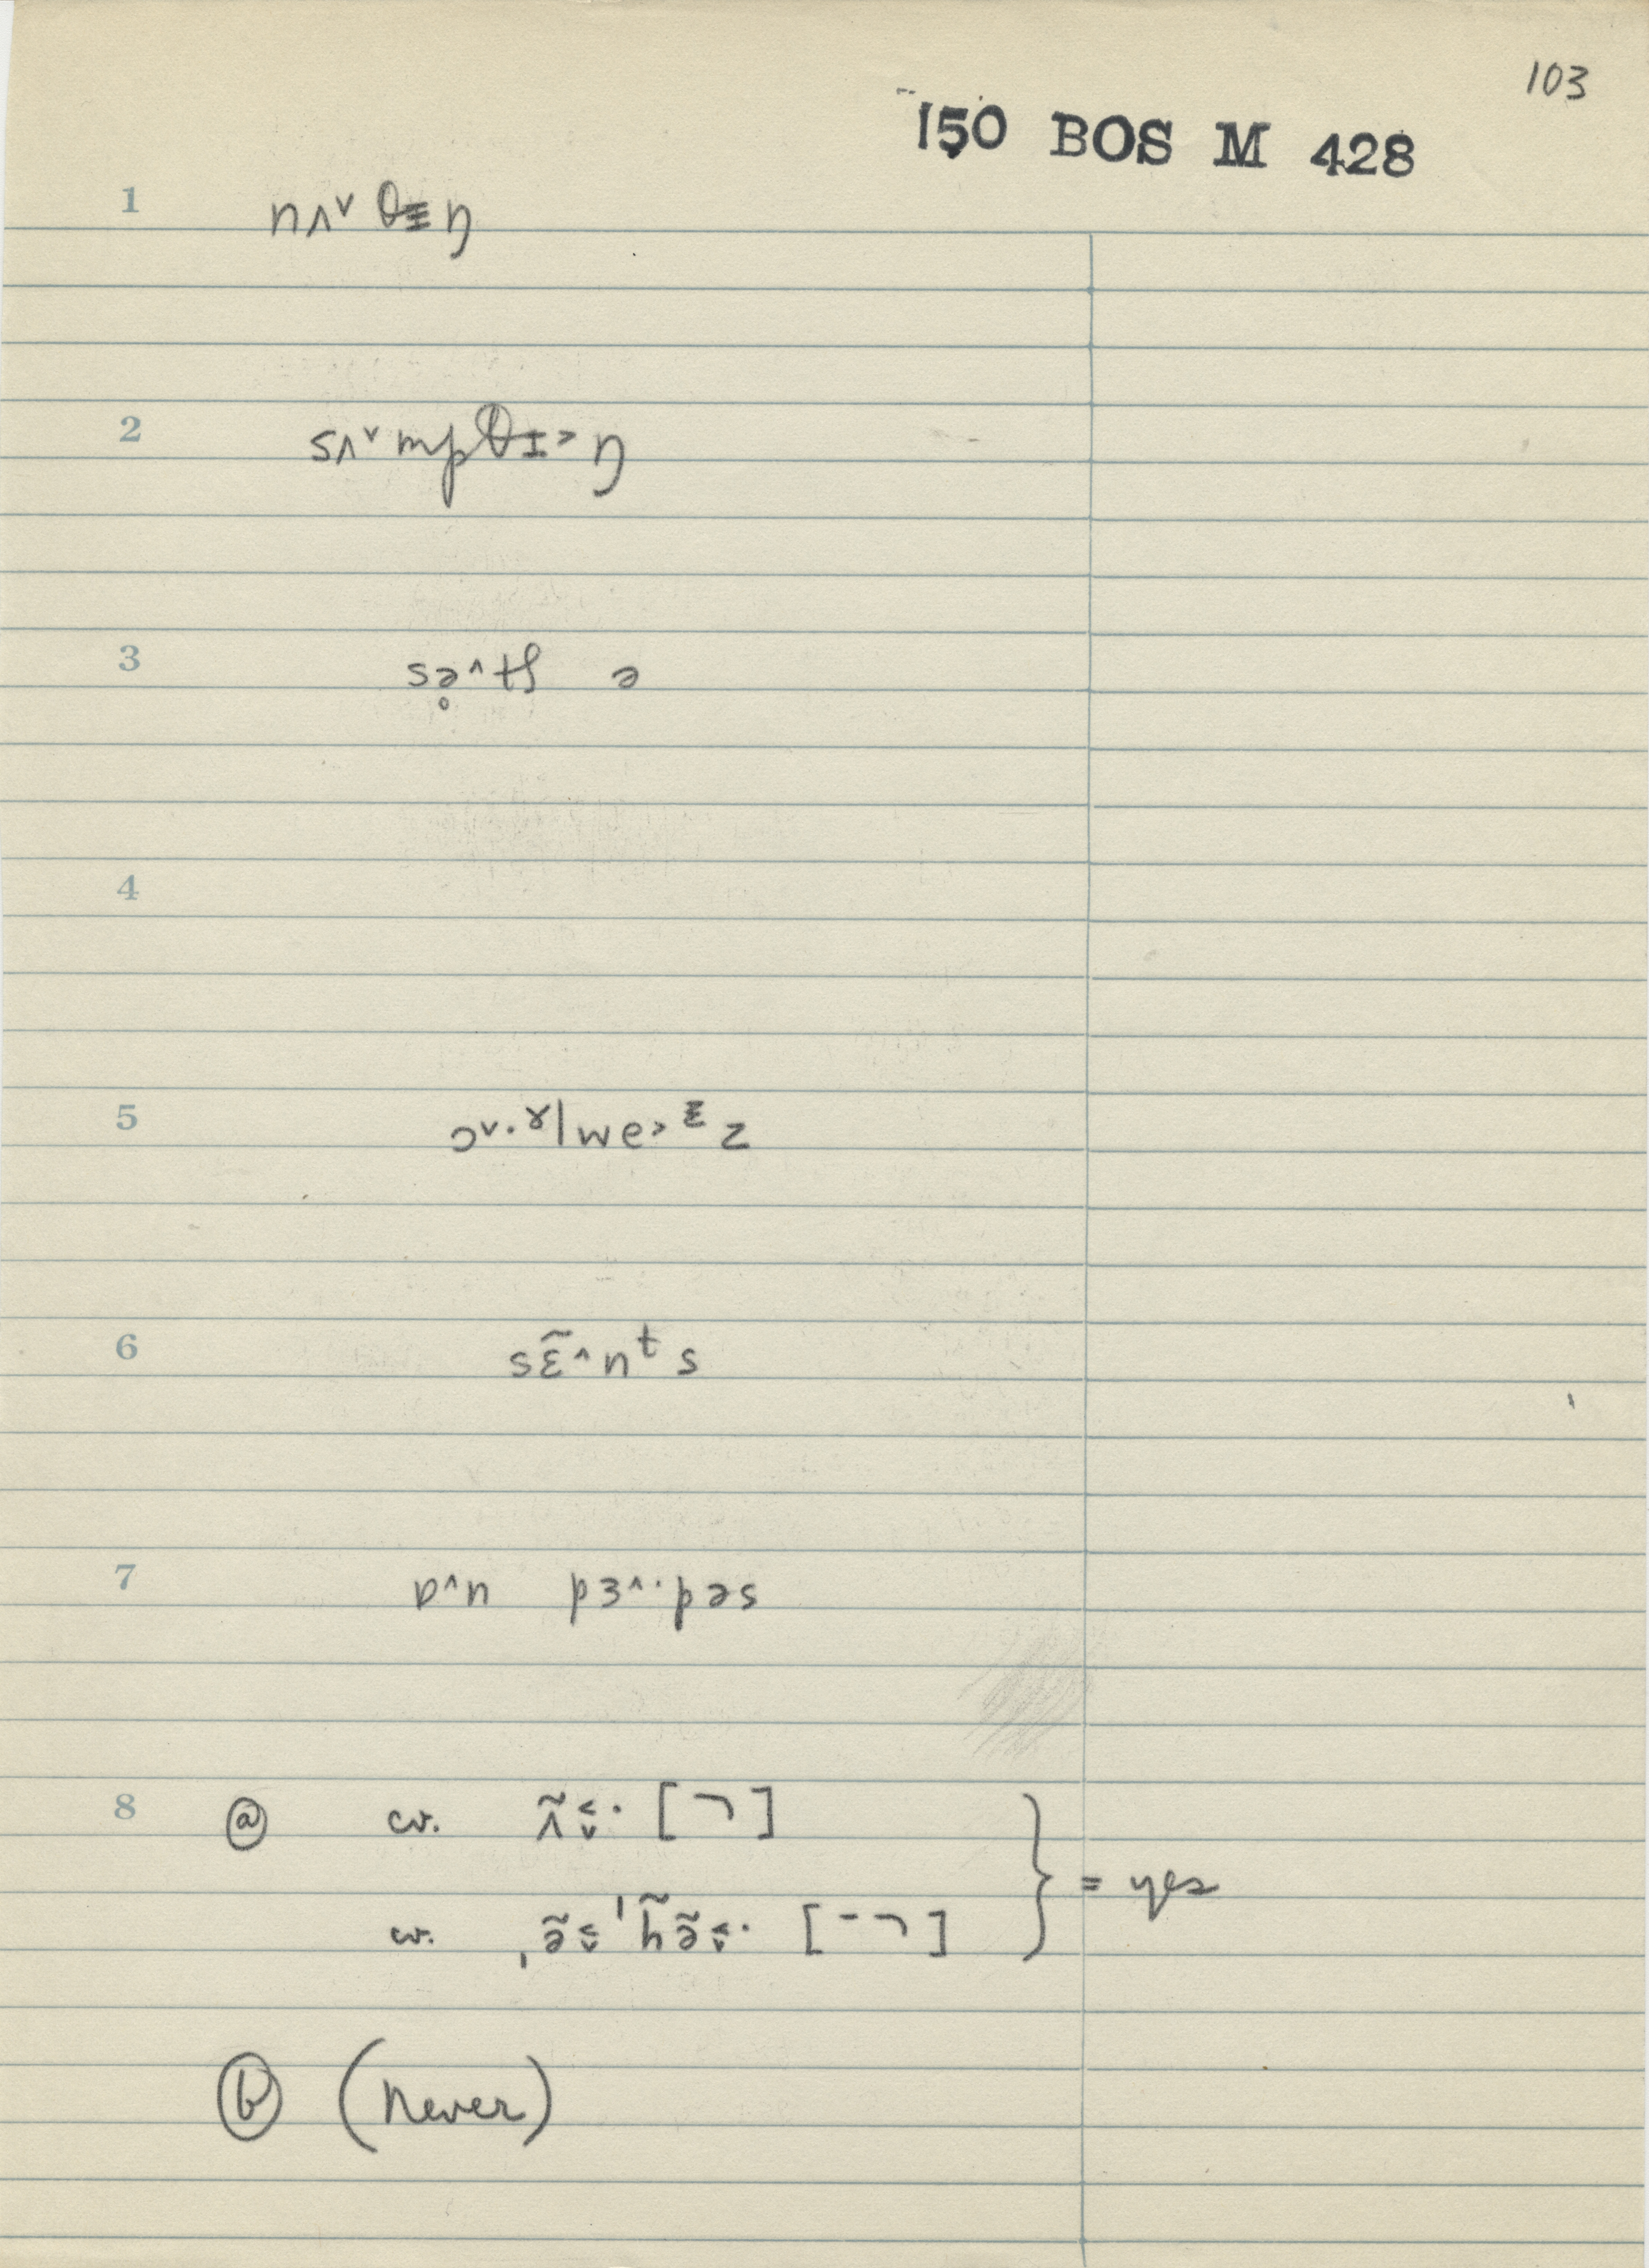 103
150 BOS M 428
1 nʌ˅ θɪ̵ŋ
2 sʌ˅mpθɪ̵˃ŋ
3 sə̥˄tʃ ə
4
5 ɔ˅·ɤ|we˃ᵻz
6 sɛ̃˄nᵗs
7 ɒ˄n pɜ˄·pəs
8 ⓐ cv. ʌ̃˂˅· [¬]
cv. ˌə̃˂˅ˈh̃ə̃˂˅· [-¬]
} = yes
ⓑ (never)